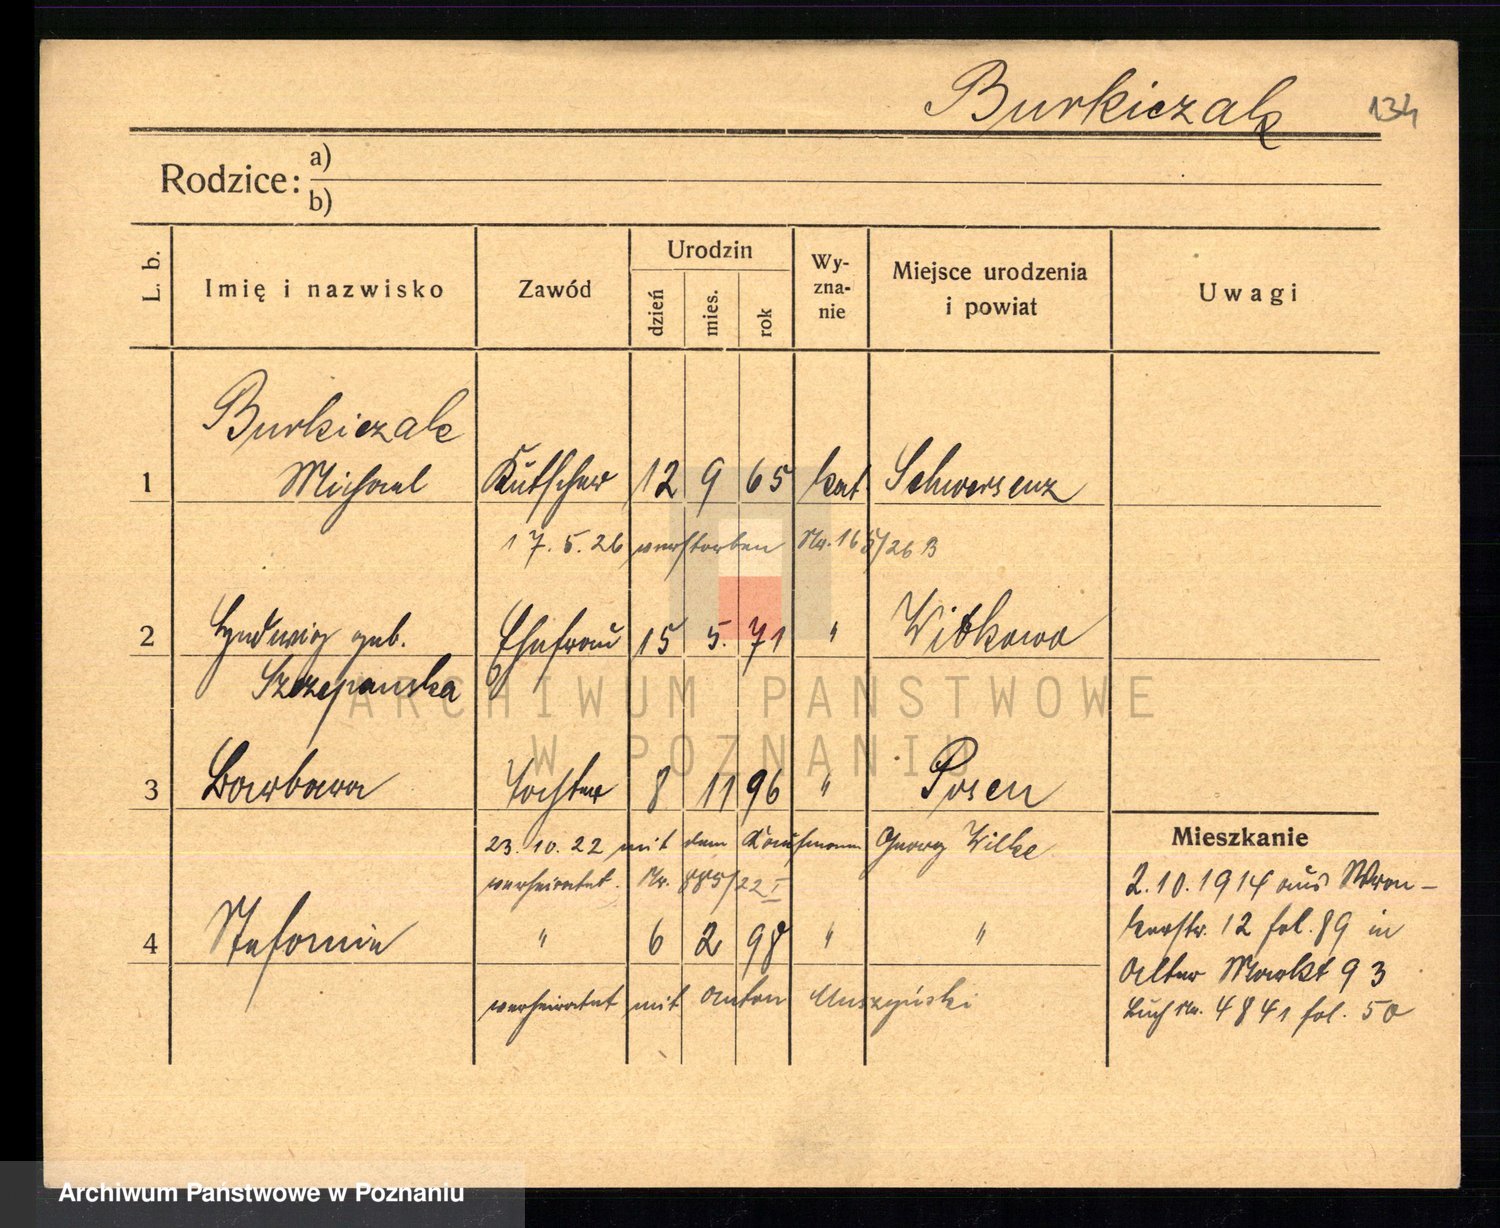 Burkiczak 134
Rodzice: a)
b)
L. b. Imię i nazwisko Zawód Urodzin dzień mies. rok Wy-zna-nie Miejsce urodzenia i powiat Uwagi
Burkiczak
1 Michael Kutscher 12 9 65 kat Schwersenz
17.5.26 verstorben Nr. 165/26 B
2 Hedwig geb. Ehefrau 15 5. 71 " Witkowo
Szczepanska
3 Barbara Tochter 8 11 96 " Posen
23.10.22 mit dem Kaufmann Georg Wilke
verheiratet. Nr. 885/22 I
4 Stefanie " 6 2 98 " "
verheiratet mit Anton Muszyński
Mieszkanie
2.10.1914 aus Wron-
kerstr. 12 fol. 89 in
Alter Markt 93
Buch Nr. 4841 fol. 50
ARCHIWUM PAŃSTWOWE
W POZNANIU
Archiwum Państwowe w Poznaniu